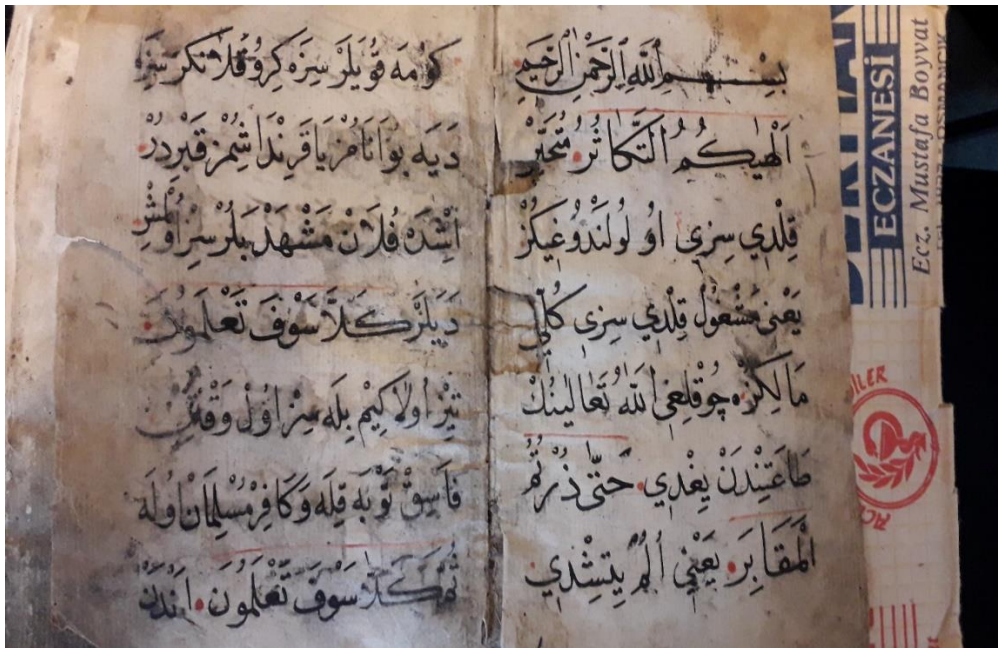 بِسْمِ اللّٰهِ الرَّحْمٰنِ الرَّحِيمِ
اَلْهٰيكُمُ التَّكَاثُرُ مُتَحَيِّرْ
قِلْدِي سِزِي اُولُولَنْدُوغِيكُزْ
يَعْنِى مَشْغُولْ قِلْدِي سِزِى كُلِّي
مَالِكِزُه چُوقْلِغِى اَللّٰهُ تَعَالٰينُكْ
طَاعَتِنْدَنْ يِغْدِي حَتّٰى ذُرْتُمُ
الْمَقَابِرَ يَعْنِي اُلُمْ يِتِشْدِي
كُومَه قُويَلَرْ سِزَه كِرُو قَلَا تَكَرْ
دَيَه بُو اَتَامُزْ يَا قَرِنْدَاشُمُزْ قَبْرِدُرْ
اِشْدَه فُلَانْ مَشْهَدْ بَلُرْسِزْ
دَيَلَرْ كَلَّا سَوْفَ تَعْلَمُونَ
تِيزْ اُولَا كِيمْ بِلَه سِزْ اُولْ وَقْتِنْ
فَاسِقْ تَوْبَه قِلَه وَكَافِرْ مُسْلِمَانْ اُولَه
ثُمَّ كَلَّا سَوْفَ تَعْلَمُونَ اَنْدَنْ
ECZANESİ
Ecz. Mustafa Boyvat